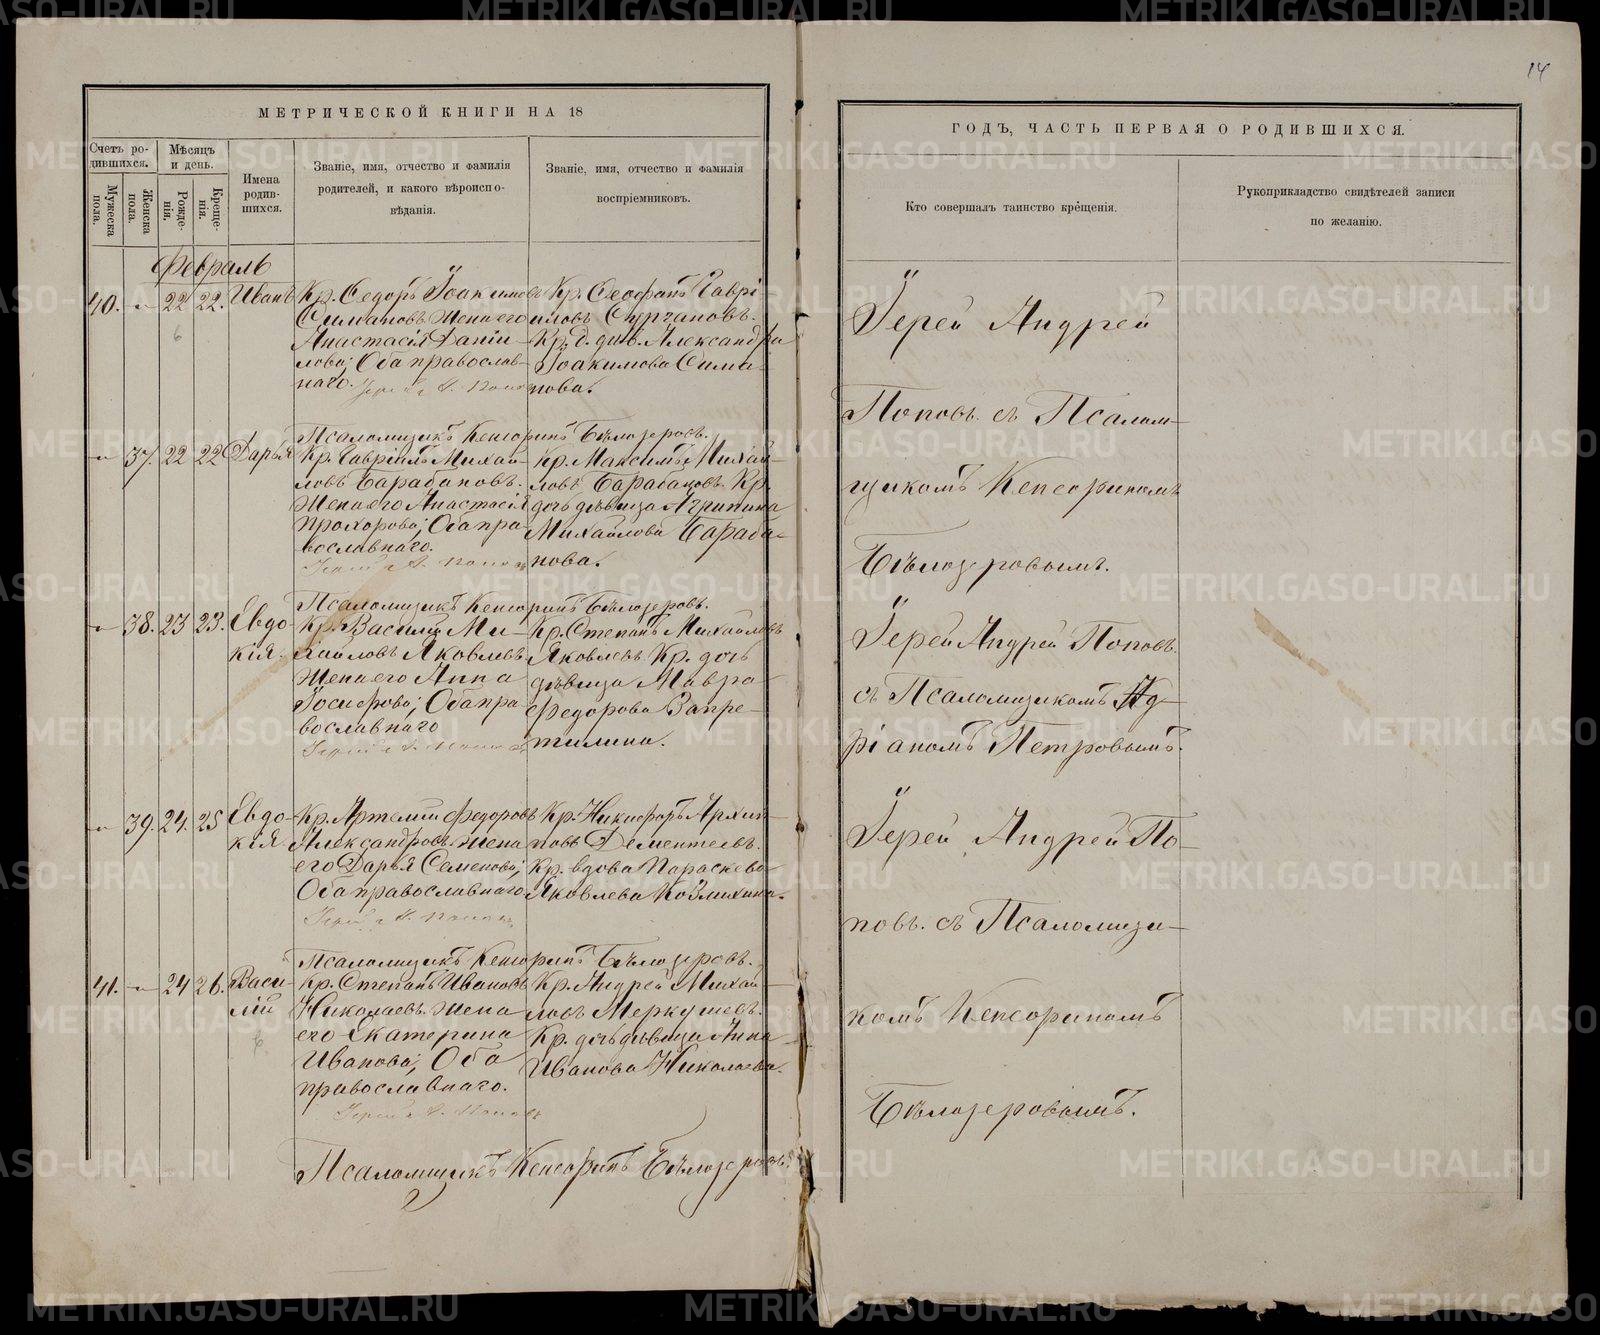 14
МЕТРИЧЕСКОЙ КНИГИ НА 18
Счетъ ро-
дившихся.
Мужеска
пола.
Женска
пола.
Мѣсяцъ
и день.
Рожде-
нія.
Креще-
нія.
Имена
родив-
шихся.
Званіе, имя, отчество и фамилія
родителей, и какого вѣроиспо-
вѣданія.
Званіе, имя, отчество и фамилія
воспріемниковъ.
ГОДЪ, ЧАСТЬ ПЕРВАЯ О РОДИВШИХСЯ.
Кто совершалъ таинство крещенія.
Рукоприкладство свидѣтелей записи
по желанію.
Февраль
40. 22 22. Иванъ
6
Кр. Ѳедоръ Іоакимовъ
Симановъ. Жена его
Анастасія Даніи-
лова; Оба православ-
наго.
Іерей А. Поповъ
Кр. Ѳеофанъ Гаврі-
иловъ
Кр. д. дѣв. Александра
Іоакимова Сима-
нова.
Іерей Андрей
Поповъ съ Псалом-
щикомъ Кенсориномъ
Бѣлозеровымъ.
Псаломщикъ Кенсоринъ Бѣлозеровъ.
37. 22 22 Дарья
Кр. Гавріилъ Михай-
ловъ Барабановъ.
Жена его Анастасія
Прохорова; Оба пра-
вославнаго.
Іерей А. Поповъ
Кр. Максимъ Михай-
ловъ Барабановъ. Кр.
дочь дѣвица Агрипина
Михайлова Бараба-
нова.
Псаломщикъ Кенсоринъ Бѣлозеровъ.
38. 23 23. Евдо-
кія.
Кр. Василій Ми-
хайловъ Яковлевъ
Жена его Анна
Іосифова; Оба пра-
вославнаго
Іерей А. Поповъ
Кр. Степанъ Михайловъ
Яковлевъ Кр. дочь
дѣвица Мавра
Федорова Запре-
тилина.
Іерей Андрей Поповъ
съ Псаломщикомъ Ад-
ріаномъ Петровымъ.
39. 24. 25 Евдо-
кія
Кр. Артемій Федоровъ
Александровъ. Жена
его Дарья Семенова;
Оба православнаго.
Іерей А. Поповъ
Кр. Никифоръ Архип-
повъ Дементьевъ.
Кр. вдова Параскева
Яковлева Козьмина.
Іерей Андрей По-
повъ. съ Псаломщи-
комъ Кенсориномъ
Бѣлозеровымъ.
Псаломщикъ Кенсоринъ Бѣлозеровъ.
41. 24 26. Васи-
лій
Кр. Степанъ Ивановъ
Николаевъ. Жена
его Екатерина
Иванова; Оба
православнаго.
Іерей А. Поповъ
Кр. Андрей Михай-
ловъ Меркушевъ.
Кр. дочь дѣвица Анна
Иванова Николаева.
Псаломщикъ Кенсоринъ Бѣлозеровъ.
METRIKI.GASO-URAL.RU